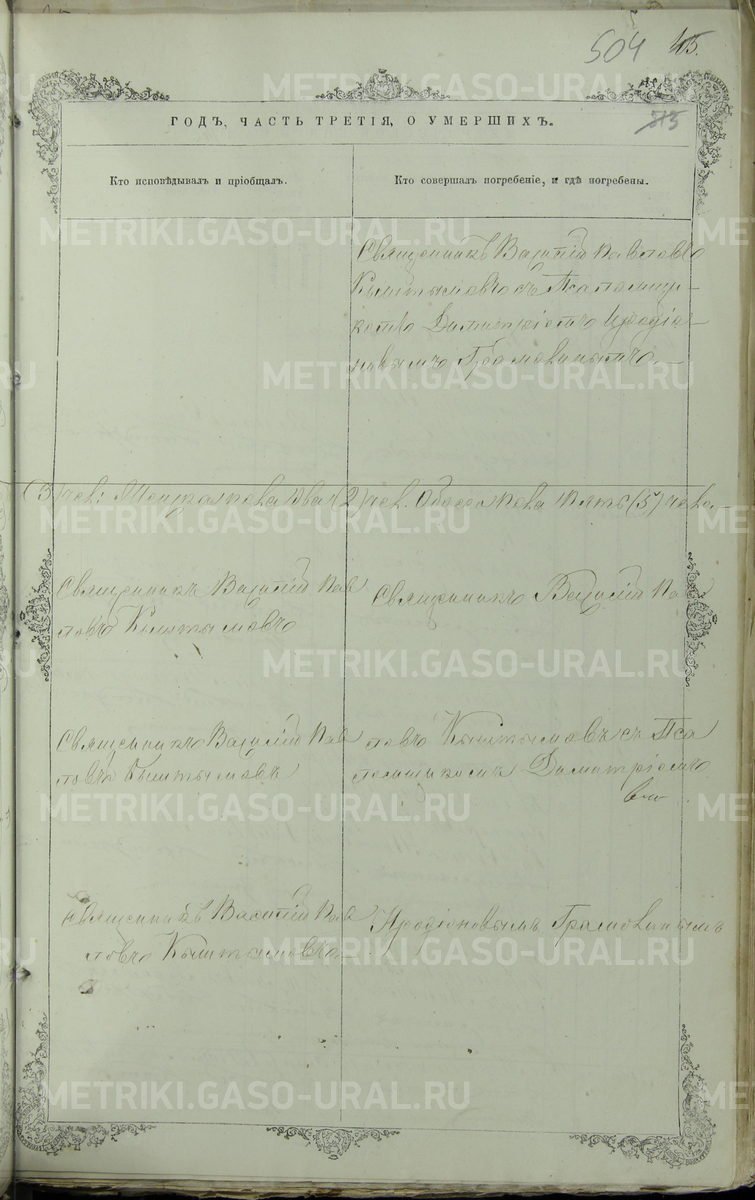 504 45.
ГОДЪ, ЧАСТЬ ТРЕТІЯ, О УМЕРШИХЪ.
Кто исповѣдывалъ и пріобщалъ.
Кто совершалъ погребеніе, и гдѣ погребены.
Священникъ Василій Павловъ
Кыштымовъ съ Псаломщи-
комъ Димитріемъ Иродіо-
новымъ Грамовинымъ.
(3) чел: Женскаго пола два (2) чел. Обоего пола пять (5) чело.
Священникъ Василій Пав
ловъ Кыштымовъ
Священникъ Василій Пав
Священникъ Василій Пав
ловъ Кыштымовъ
ловъ Кыштымовъ съ Пса
ломщикомъ Димитріемъ
Священникъ Василій Пав
ловъ Кыштымовъ
Иродіоновымъ Грамовинымъ
METRIKI.GASO-URAL.RU